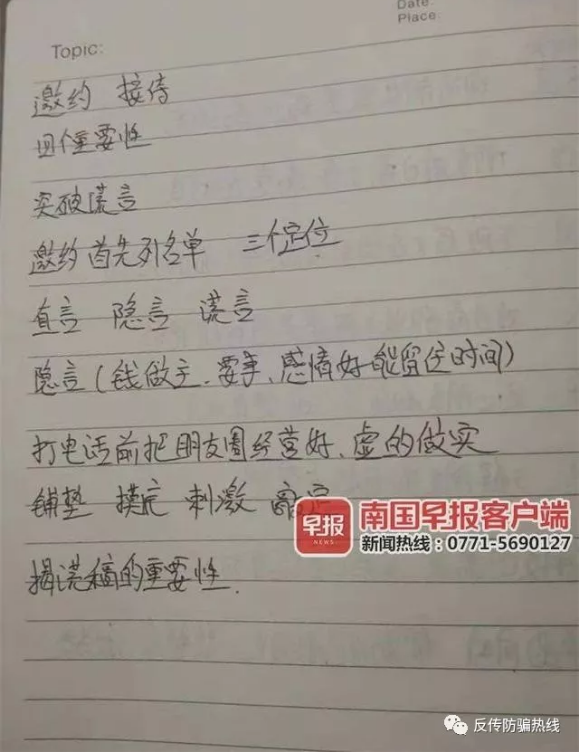 Date:
Place
Topic:
邀约 接待
四个重要性
突破谎言
邀约首先列名单 三个定位
直言 隐言 谎言
隐言(钱做主、要事、感情好能留住时间)
打电话前把朋友圈经营好、虚的做实
铺垫 摸底 刺激 敲定
早报
NEWS
南国早报客户端
新闻热线:0771-5690127
揭谎稿的重要性.
反传防骗热线